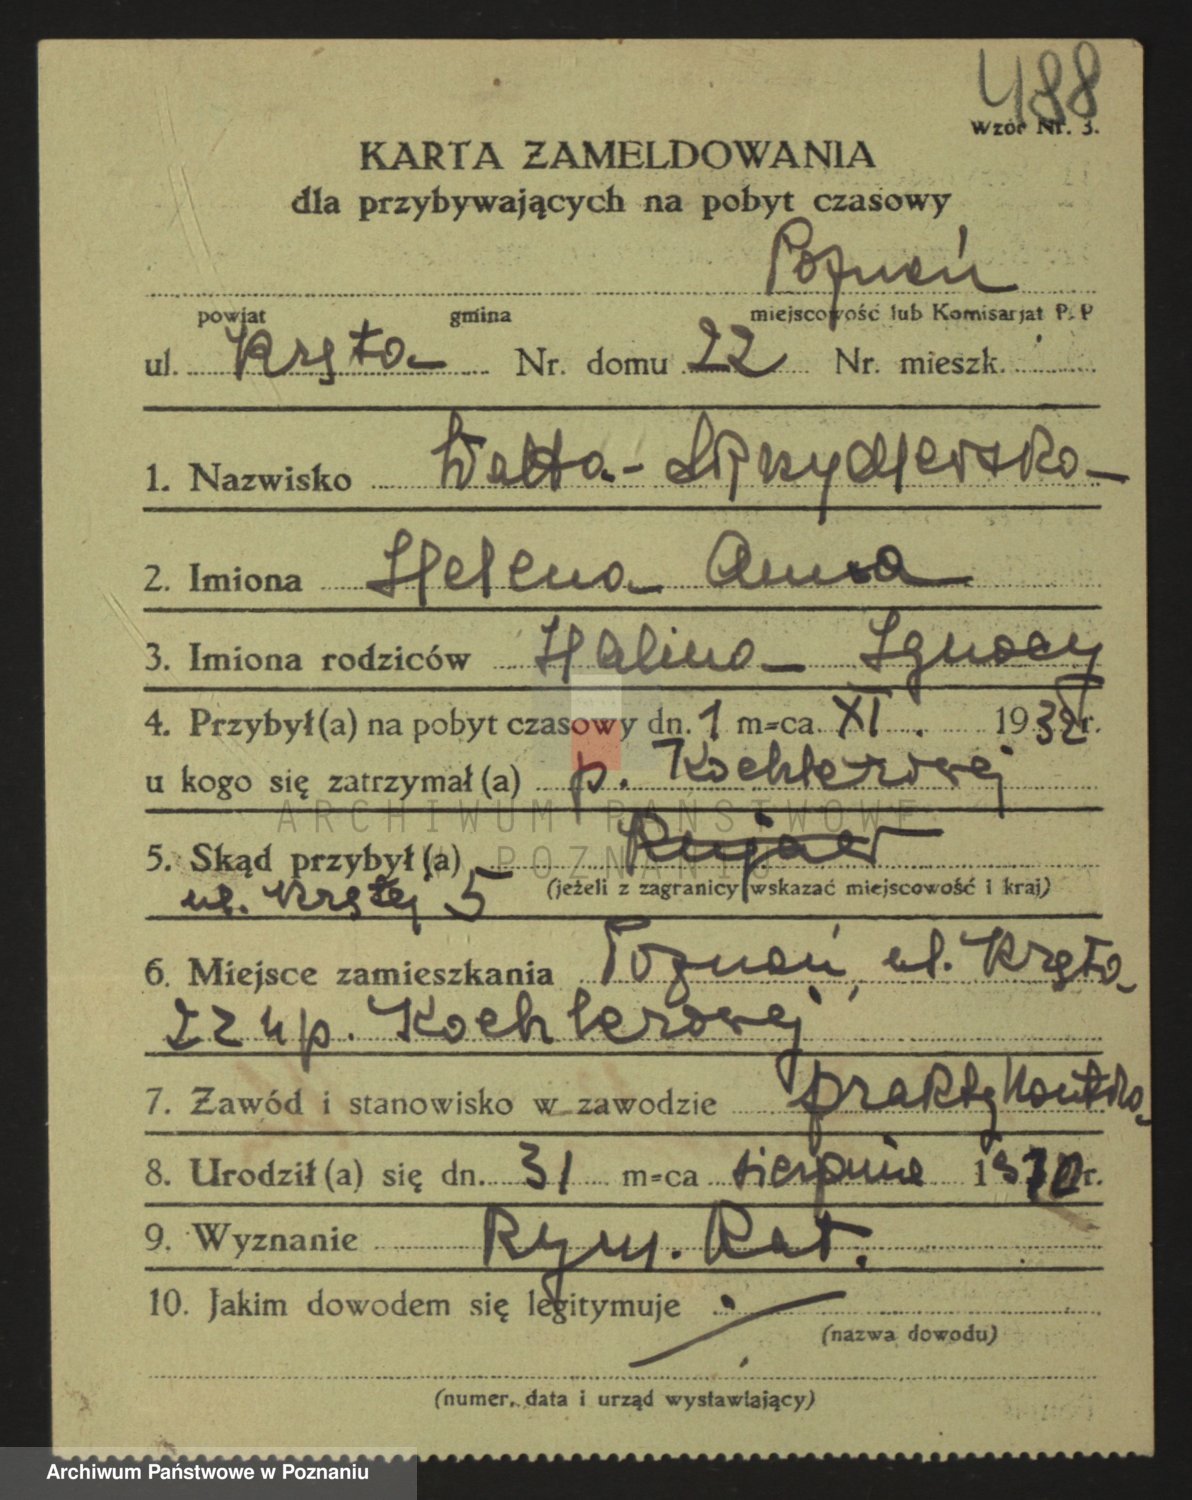 488
Wzór Nr. 3.
KARTA ZAMELDOWANIA
dla przybywających na pobyt czasowy
Poznań
powiat gmina miejscowość lub Komisarjat P. P
ul. Kręta Nr. domu 22 Nr. mieszk.
1. Nazwisko Watta-Skrzydlewska
2. Imiona Helena Anna
3. Imiona rodziców Halina Ignacy
4. Przybył(a) na pobyt czasowy dn. 1 m=ca XI. 1932 r.
u kogo się zatrzymał(a) p. Kochlerowej
ARCHIWUM PAŃSTWOWE
W POZNANIU
5. Skąd przybył(a)
ul. Krętej 5 (jeżeli z zagranicy wskazać miejscowość i kraj)
6. Miejsce zamieszkania Poznań, ul. Kręta
22 u p. Kochlerowej
7. Zawód i stanowisko w zawodzie praktykantka
8. Urodził(a) się dn. 31 m=ca sierpnia 1 r.
9. Wyznanie Rzym. Kat.
10. Jakim dowodem się legitymuje
(nazwa dowodu)
(numer, data i urząd wystawiający)
Archiwum Państwowe w Poznaniu